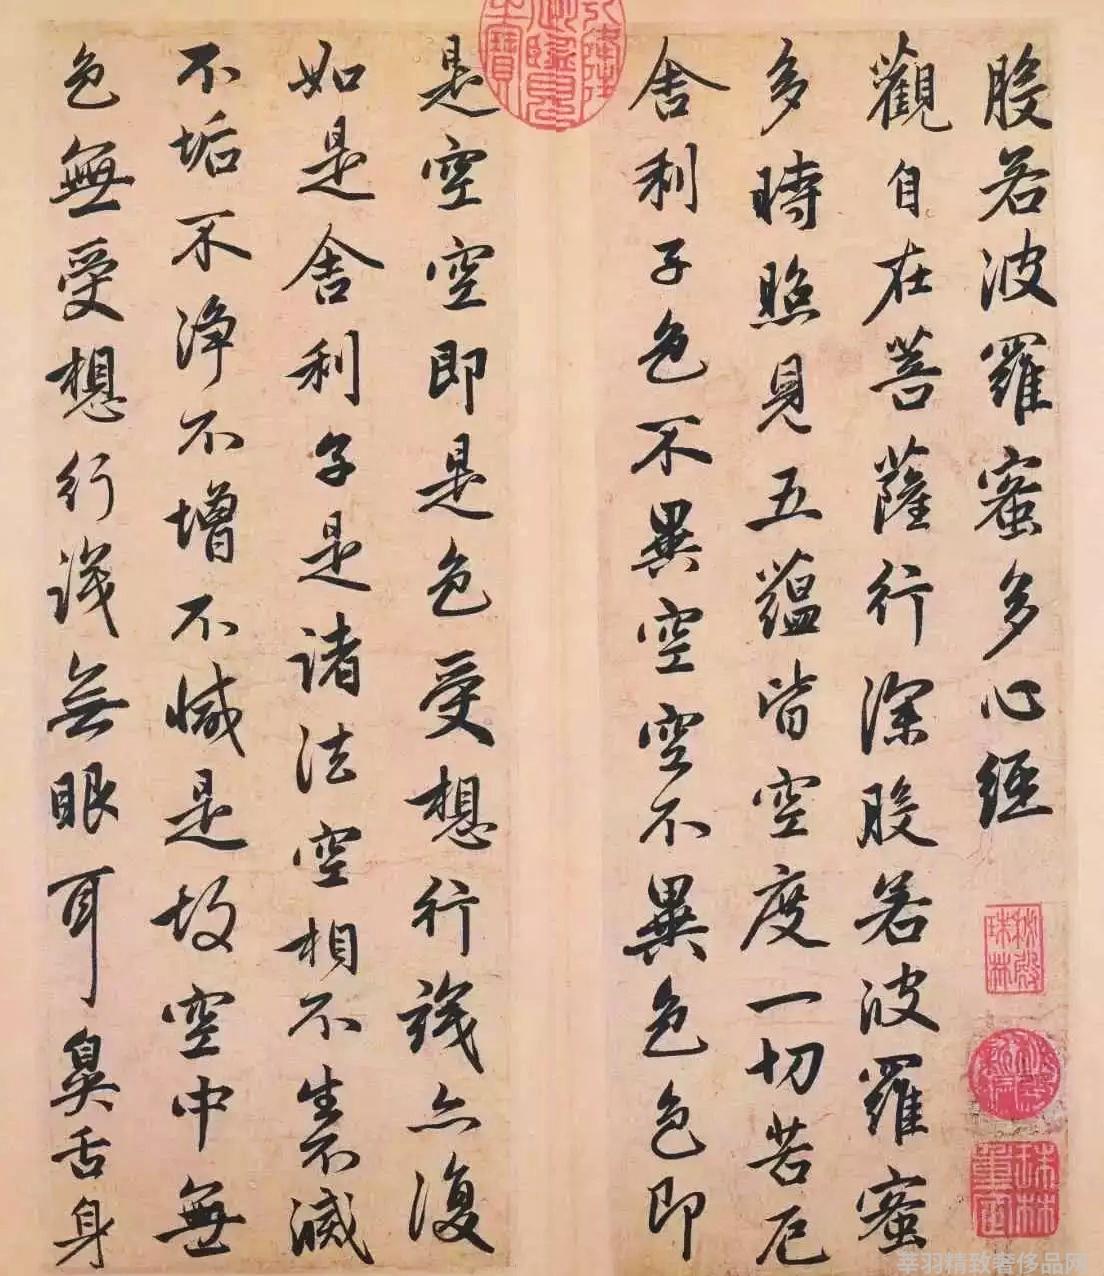 般若波羅蜜多心經
觀自在菩薩行深般若波羅蜜
多時照見五蘊皆空度一切苦厄
舍利子色不異空空不異色色即
是空空即是色受想行識亦復
如是舍利子是諸法空相不生不滅
不垢不淨不增不減是故空中無
色無受想行識無眼耳鼻舌身
秘殿珠林
珠林重定
莘羽精致奢侈品网